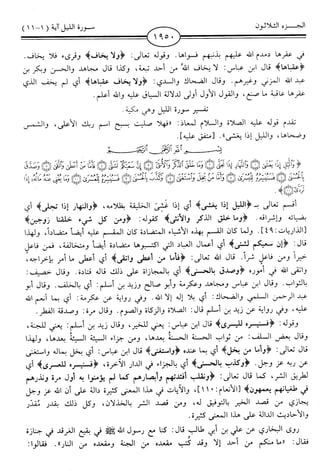 الجـزء الثـلاثـون
سورة الليل آية (١-١١)
١٩٥٠
في عقرها دمدم الله عليهم بذنبهم فسواها. وقوله تعالى: ﴿ولا يخاف﴾ وقرىء فلا يخاف.
﴿عقباها﴾ قال ابن عباس: لا يخاف الله من أحد تبعة، وكذا قال مجاهد والحسن وبكر بن
عبد الله المزني وغيرهم. وقال الضحاك والسدي: ﴿ولا يخاف عقباها﴾ أي لم يخف الذي
عقرها عاقبة ما صنع، والقول الأول أولى لدلالة السياق عليه والله أعلم.
تفسير سورة الليل وهي مكية.
تقدم قوله عليه الصلاة والسلام لمعاذ: «فهلا صليت بسبح اسم ربك الأعلى، والشمس
وضحاها، والليل إذا يغشى». [متفق عليه].
أقسم تعالى بـ ﴿الليل إذا يغشى﴾ أي إذا غشي الخليقة بظلامه، ﴿والنهار إذا تجلى﴾ أي
بضيائه وإشراقه. ﴿وما خلق الذكر والأنثى﴾ كقوله: ﴿ومن كل شيء خلقنا زوجين﴾
[الذاريات: ٤٩]. ولما كان القسم بهذه الأشياء المتضادة كان المقسم عليه أيضاً متضاداً، ولهذا
قال: ﴿إن سعيكم لشتى﴾ أي أعمال العباد التي اكتسبوها متضادة أيضاً ومتخالفة، فمن فاعل
خيراً ومن فاعل شراً. قال الله تعالى: ﴿فأما من أعطى واتقى﴾ أي أعطى ما أمر بإخراجه،
واتقى الله في أموره ﴿وصدق بالحسنى﴾ أي بالمجازاة على ذلك قاله قتادة. وقال خصيف:
بالثواب. وقال ابن عباس ومجاهد وعكرمة وأبو صالح وزيد بن أسلم: أي بالخلف. وقال أبو
عبد الرحمن السلمي والضحاك: أي بلا إله إلا الله. وفي رواية عن عكرمة: أي بما أنعم الله
عليه، وفي رواية عن زيد بن أسلم قال: الصلاة والزكاة والصوم. وقال مرة: وصدقة الفطر.
وقوله: ﴿فسنيسره لليسرى﴾ قال ابن عباس: يعني للخير، وقال زيد بن أسلم: يعني للجنة،
وقال بعض السلف: من ثواب الحسنة الحسنة بعدها، ومن جزاء السيئة السيئة بعدها، ولهذا
قال تعالى: ﴿وأما من بخل﴾ أي بما عنده ﴿واستغنى﴾ قال ابن عباس: أي بخل بماله واستغنى
عن ربه عز وجل. ﴿وكذب بالحسنى﴾ أي بالجزاء في الدار الآخرة، ﴿فسنيسره للعسرى﴾ أي
لطريق الشر، كما قال تعالى: ﴿ونقلب أفئدتهم وأبصارهم كما لم يؤمنوا به أول مرة ونذرهم
في طغيانهم يعمهون﴾ [الأنعام: ١١٠]، والآيات في هذا المعنى كثيرة دالة على أن الله عز وجل
يجازي من قصد الخير بالتوفيق له، ومن قصد الشر بالخذلان، وكل ذلك بقدر مُقدّر
والأحاديث الدالة على هذا المعنى كثيرة.
روى البخاري عن علي بن أبي طالب قال: كنا مع رسول الله ﷺ في بقيع الغرقد في جنازة
فقال: «ما منكم من أحد إلا وقد كُتب مقعده من الجنة ومقعده من النار». فقالوا: